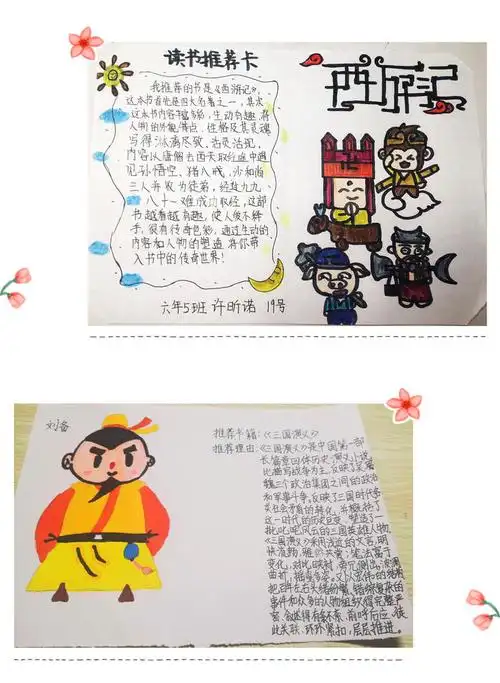 读书推荐卡
我推荐的书是《西游记》,
这本书也是四大名著之一,其次
这本书内容精彩,生动有趣,将
人物的外貌特点、性格及其灵魂
写得淋漓尽致、活灵活现,
内容从唐僧去西天取经途中遇
见孙悟空,猪八戒,沙和尚
三人并收为徒弟,经过九九
八十一难成功取经,这部
书越看越有趣,使人爱不释
手,很有传奇色彩,通过生动的
内容和人物的塑造将你带
入书中的传奇世界!
六年5班 许昕诺 19号
西游记
刘备
推荐书籍:《三国演义》
推荐理由:《三国演义》是中国第一部
长篇章回体历史演义小说
以描写战争为主,反映了
三个政治集团之间的政治
和军事斗争,反映了三国时代
社会矛盾的转化,并概括了
这一时代的历史巨变,塑造了一
批叱咤风云的三国英雄人物。
《三国演义》采用浅近的文言,明
快流畅,雅俗共赏;笔法富于
变化,对比映衬,旁冗侧出,波澜
曲折,摇曳多姿。又以宏伟的结构
把百年左右头绪纷繁、错综复杂的
事件和众多的人物组织得完整严
密,叙述得有条不紊、前呼后应,彼
此关联,环环紧扣,层层推进。